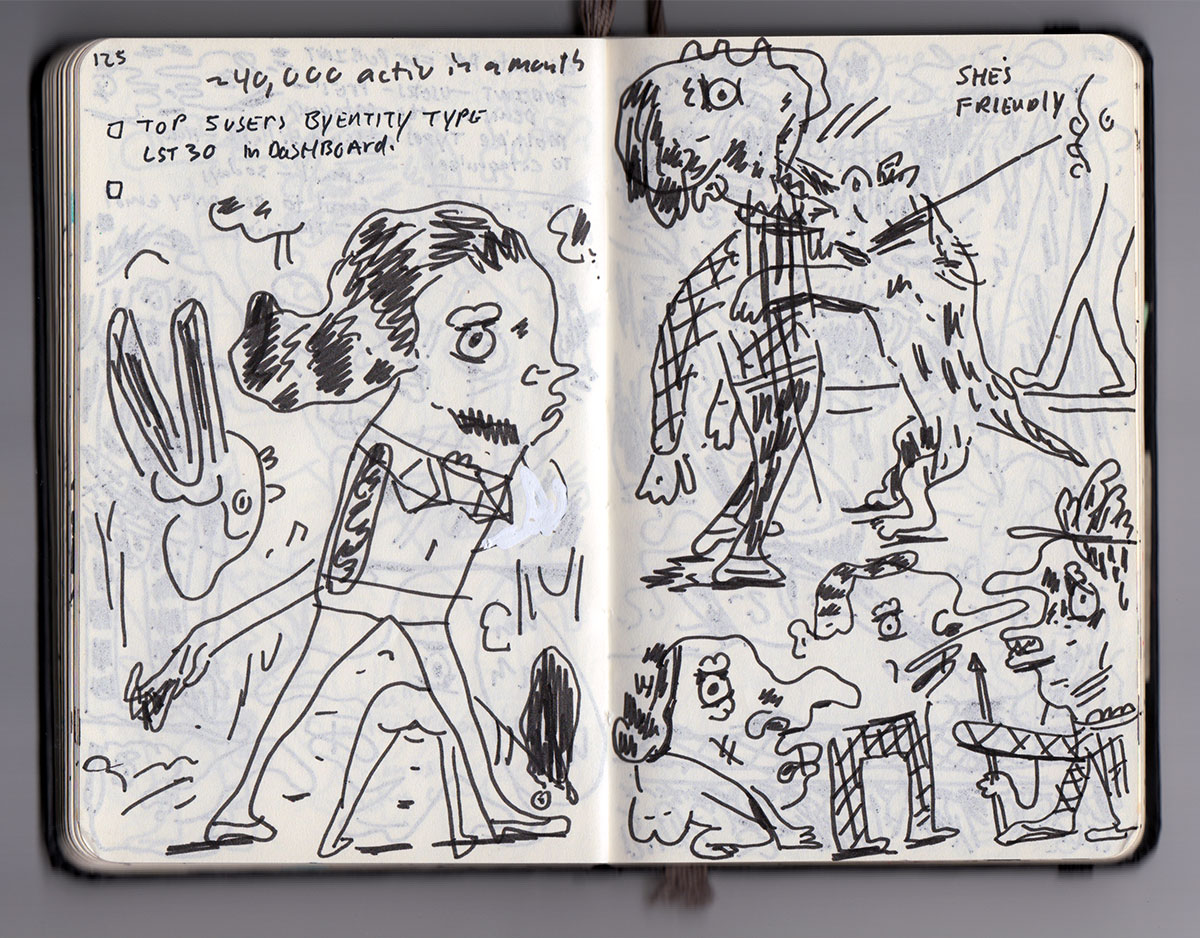 125
~40,000 activ in a month
TOP 5 USERS BY ENTITY TYPE
LST 30 in DASHBOARD.
SHE'S
FRIENDLY